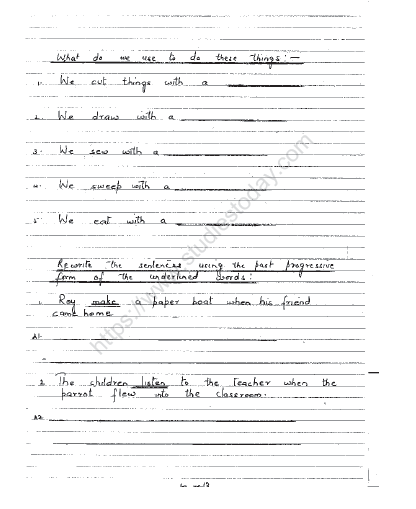 What do we use to do these things:-
1. We cut things with a
2. We draw with a
3. We sew with a
4. We sweep with a
5. We eat with a
Rewrite the sentences using the past progressive
form of the underlined words:
1. Roy make a paper boat when his friend
came home
A1-
2. The children listen to the teacher when the
parrot flew into the classroom.
A2
https://www.studiestoday.com